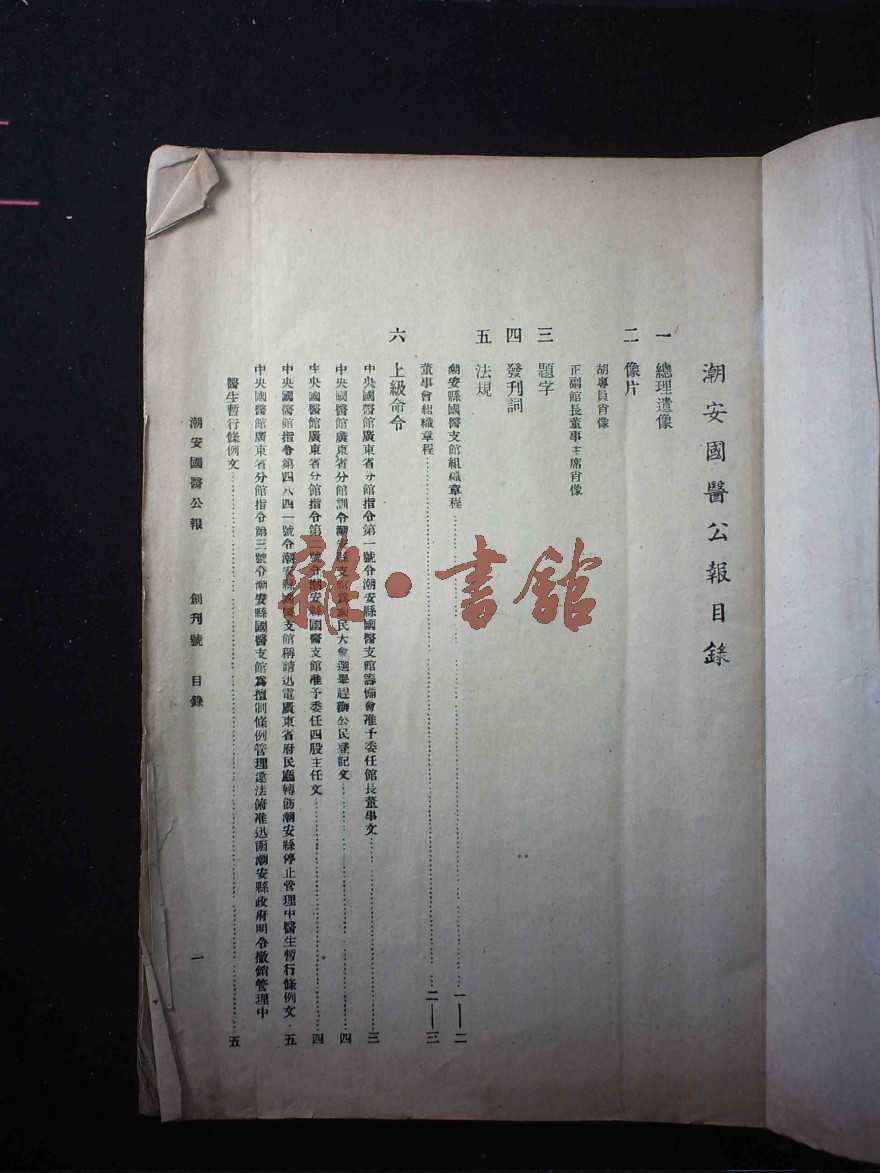 潮安國醫公報目錄
一 總理遺像
二 像片
胡專員肖像
正副館長董事主席肖像
三 題字
四 發刊詞
五 法規
潮安縣國醫支館組織章程 一—二
董事會組織章程 二—三
六 上級命令
中央國醫館廣東省分館指令第一號令潮安縣國醫支館籌備會准予委任館長董事文 三
中央國醫館廣東省分館訓令潮安縣支館為國民大會選舉趕辦公民登記文 四
中央國醫館廣東省分館指令第二號令潮安縣國醫支館准予委任四股主任文 四
中央國醫館指令第四八四一號令潮安縣國醫支館稱請迅電廣東省府民廳轉飭潮安縣停止管理中醫生暫行條例文 五
中央國醫館廣東省分館指令第三號令潮安縣國醫支館為擅制條例管理違法俯准迅函潮安縣政府明令撤銷管理中
醫生暫行條例文 五
潮安國醫公報 創刊號 目錄 一
雜·書館